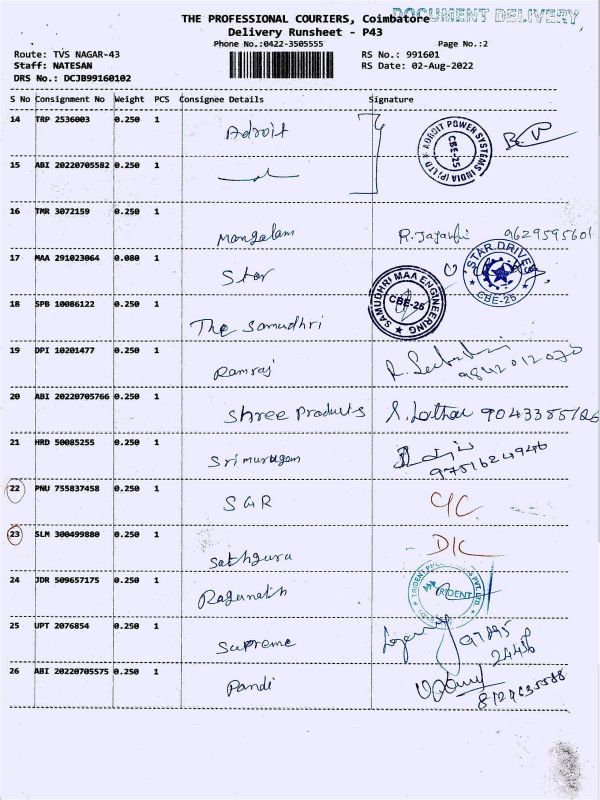 THE PROFESSIONAL COURIERS, Coimbatore
DOCUMENT DELIVERY
Delivery Runsheet - P43
Phone No.:0422-3505555 Page No.:2
Route: TVS NAGAR-43 RS No.: 991601
Staff: NATESAN RS Date: 02-Aug-2022
DRS No.: DCJB99160102
S No Consignment No Weight PCS Consignee Details Signature
14 TRP 2536003 0.250 1 Adroit
ADROIT POWER SYSTEMS INDIA (P) LTD CBE-25
15 ABI 20220705582 0.250 1
16 TMR 3072159 0.250 1 Mangalam R. Jayanthi 9629595601
17 MAA 291023064 0.080 1 Star
STAR DRIVES CBE-25
18 SPB 10086122 0.250 1 The Samudhri
SAMUDHRI MAA ENGINEERING CBE-25
19 DPI 10201477 0.250 1 Ramraj
20 ABI 20220705766 0.250 1 Shree Products
21 HRD 50085255 0.250 1 Srimurugan 9751624946
22 PNU 755837458 0.250 1 SGR
23 SLM 300499880 0.250 1 Sathguru
24 JDR 509657175 0.250 1 Ragunath
TRIDENT
25 UPT 2076854 0.250 1 Supreme 97895
24486
26 ABI 20220705575 0.250 1 Pandi